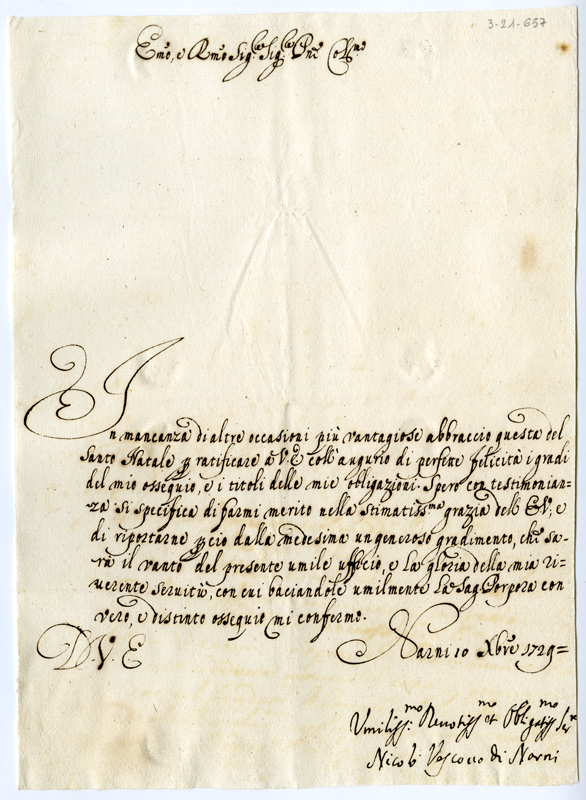 3-21-657
Emo, e Rmo Sig.re Sig.re Pne Col.mo
In mancanza di altre occasioni più vantagiose abbraccio questa del
Santo Natale p ratificare à V.E coll'augurio di perfette felicità i gradi
del mio ossequio, e i titoli delle mie obligazioni. Spero con testimonian=
za si specifica di farmi merito nella stimatiss.ma grazia dell'E.V, e
di riportarne p cio dalla medesima un generoso gradimento, che sa-
rà il vanto del presente umile ufficio, e la gloria della mia ri-
uerente seruitù, con cui baciandole umilmente la Sag. Porpora con
vero, e distinto ossequio mi confermo.
D.V.E
Narni 10 Xbre 1729=
Vmiliss:mo Deuotiss.mo et Obligatiss.mo Ser.re
Nicolò Vescouo di Narni